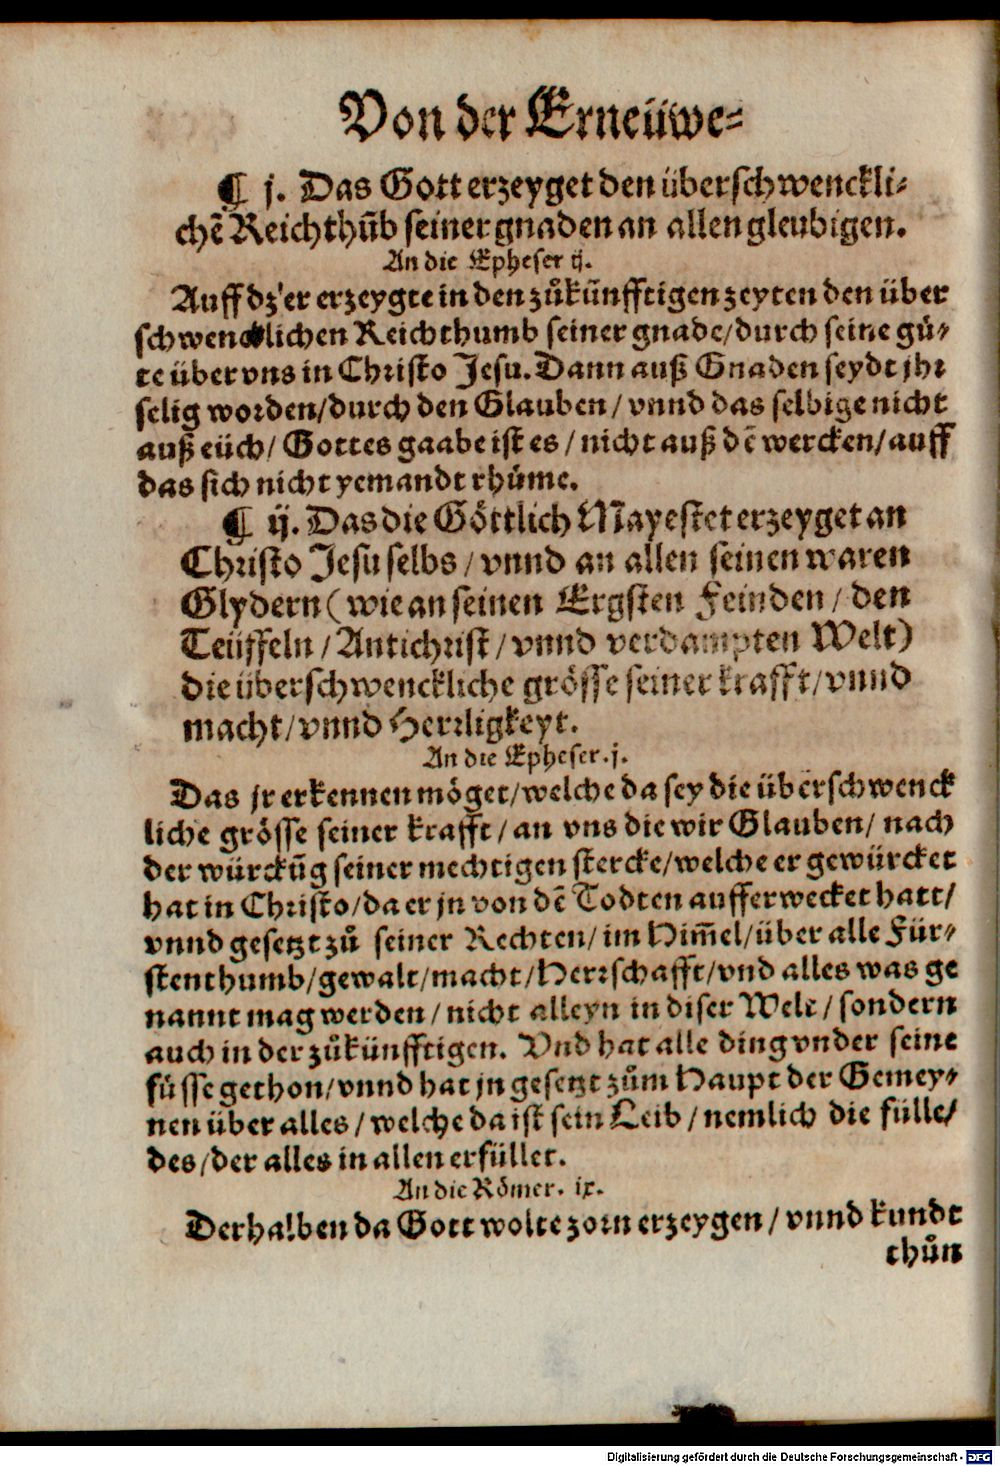 Von der Erneüwe⸗
¶ j. Das Gott erzeyget den überschwenckli⸗
chẽ Reichthũb seiner gnaden an allen gleubigen.
An die Epheser ij.
Auff dz er erzeygte in den zůkünfftigen zeyten den über
schwencklichen Reichthumb seiner gnade/durch seine gü⸗
te über vns in Christo Jesu. Dann auß Gnaden seydt jhr
selig worden/durch den Glauben/ vnnd das selbige nicht
auß eüch/ Gottes gaabe ist es / nicht auß dẽ wercken/auff
das sich nicht yemandt rhüme.
¶ ij. Das die Göttlich Mayestet erzeyget an
Christo Jesu selbs / vnnd an allen seinen waren
Glydern (wie an seinen Ergsten Feinden / den
Teüffeln / Antichrist / vnnd verdampten Welt)
die überschwenckliche grösse seiner krafft/ vnnd
macht/ vnnd Herrligkeyt.
An die Epheser. j.
Das jr erkennen möget/welche da sey die überschwenck
liche grösse seiner krafft / an vns die wir Glauben/ nach
der würckũg seiner mechtigen stercke/welche er gewürcket
hat in Christo/da er jn von dẽ Todten aufferwecket hatt/
vnnd gesetzt zů seiner Rechten/ im Him̃el/über alle Für⸗
stenthumb/gewalt/macht/Herrschafft/vnd alles was ge
nannt mag werden / nicht alleyn in diser Welt / sondern
auch in der zůkünfftigen. Vnd hat alle ding vnder seine
füsse gethon/vnnd hat jn gesetzt zům Haupt der Gemey⸗
nen über alles / welche da ist sein Leib / nemlich die fülle/
des/der alles in allen erfüllet.
An die Römer. ix.
Derhalben da Gott wolte zorn erzeygen / vnnd kundt
thůn
Digitalisierung gefördert durch die Deutsche Forschungsgemeinschaft - DFG